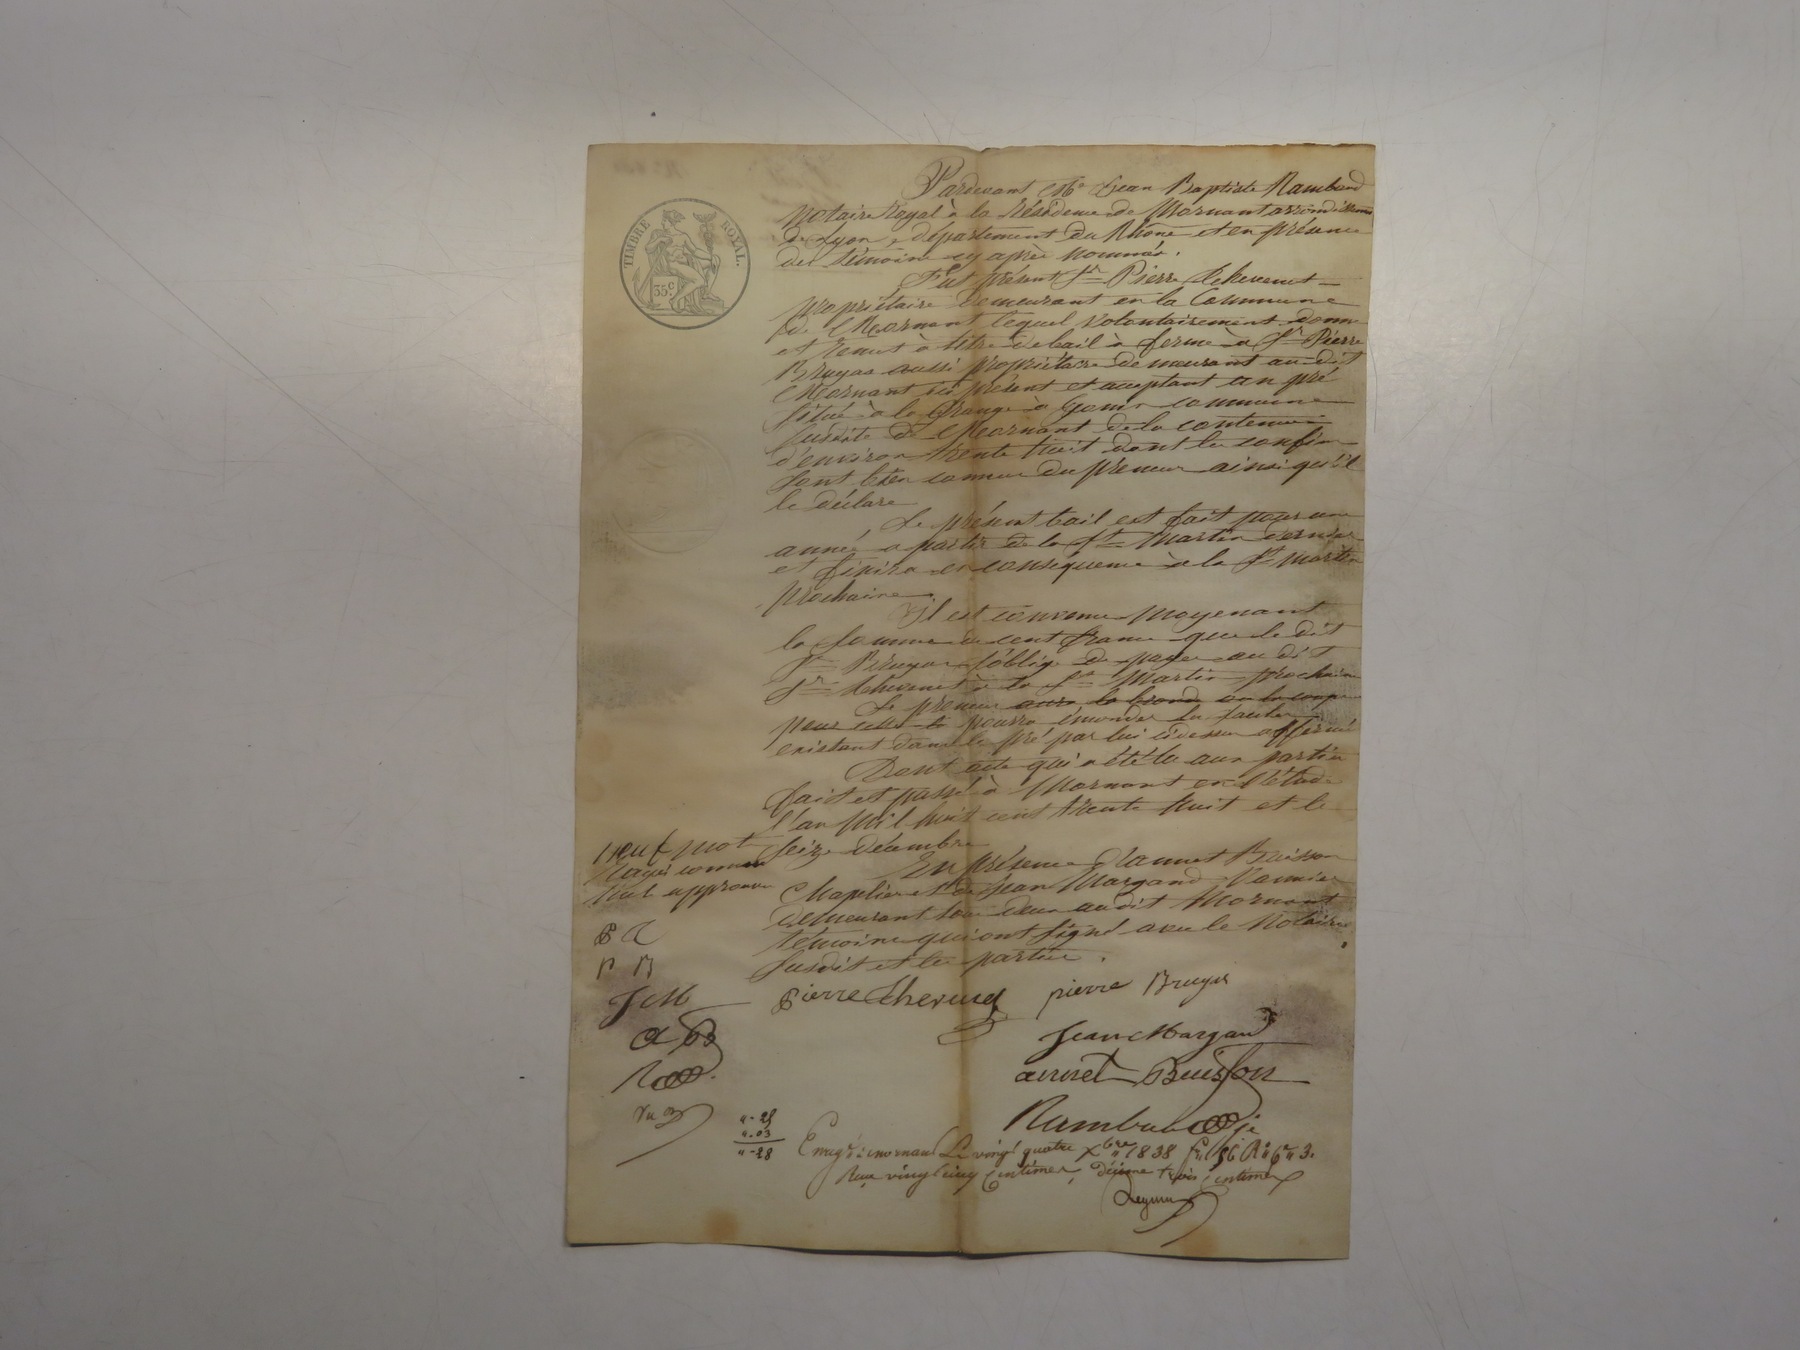 TIMBRE ROYAL.
35c
Pardevant Me Jean Baptiste Rambaud
Notaire Royal à la résidence de Mornant arrondissement
de Lyon, département du Rhône et en présence
des témoins cy après nommés.
Fut présent Sr Pierre
propriétaire demeurant en la Commune
de Mornant lequel volontairement donne
et remet à titre de bail à ferme à Sr Pierre
Bruyas aussi propriétaire demeurant au dit
Mornant ici présent et acceptant un pré
situé à la Grange à commune
susdite de Mornant de la contenue
d'environ trente huit dont les confins
sont bien connus du preneur ainsi qu'il
le déclare
Le présent bail est fait pour une
année a partir de la St Martin dernier
et finira en conséquence à la St martin
prochaine
Il est convenu moyenant
la somme de cent francs que le dit
Sr Bruyas s'oblige de payer au dit
Sr à la St Martin prochaine
Le preneur aura la
pour pourra émonder les saules
existant dans le pré par lui cidessus affermé
Dont acte qui a été lu aux parties
fait et passé à Mornant en l'étude
l'an mil huit cent trente huit et le
seize décembre
neuf mot
rayés comme
nul approuvé
En présence d'annet Buisson
Chapelier et de Jean Margand Vannier
demeurant tous deux audit Mornant
témoins qui ont signé avec le Notaire
susdit et les parties.
P B
J M
a B
pierre Bruyas
Jean Margand
annet Buisson
Rambaud
"-25
"-03
"-28
Enregré à mornant Le vingt quatre Xbre 1838
Reçu vingt cinq Centimes, décime trois Centimes